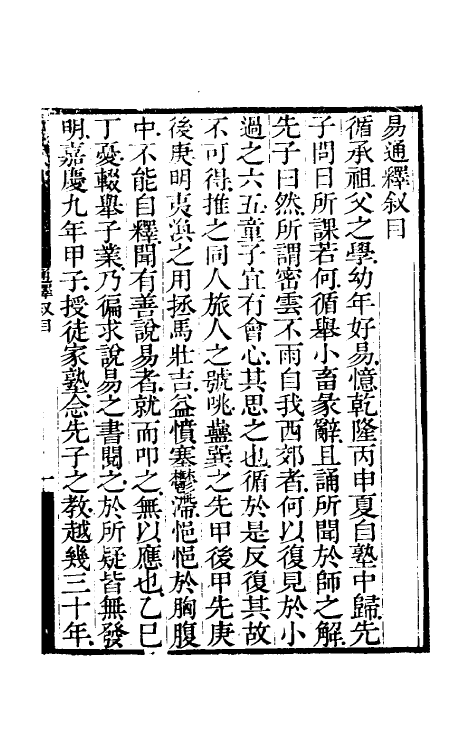 易通釋叙目
循承祖父之學幼年好易憶乾隆丙申夏自塾中歸先
子問日所課若何循舉小畜彖辭且誦所聞於師之解
先子曰然所謂密雲不雨自我西郊者何以復見於小
過之六五童子宜有會心其思之也循於是反復其故
不可得推之同人旅人之號咷蠱巽之先甲後甲先庚
後庚明夷渙之用拯馬壯吉益憤塞鬱滯悒悒於胸腹
中不能自釋聞有善說易者就而叩之無以應也乙巳
丁憂輟舉子業乃徧求說易之書閱之於所疑皆無發
明嘉慶九年甲子授徒家塾念先子之教越幾三十年
通釋叙目
一